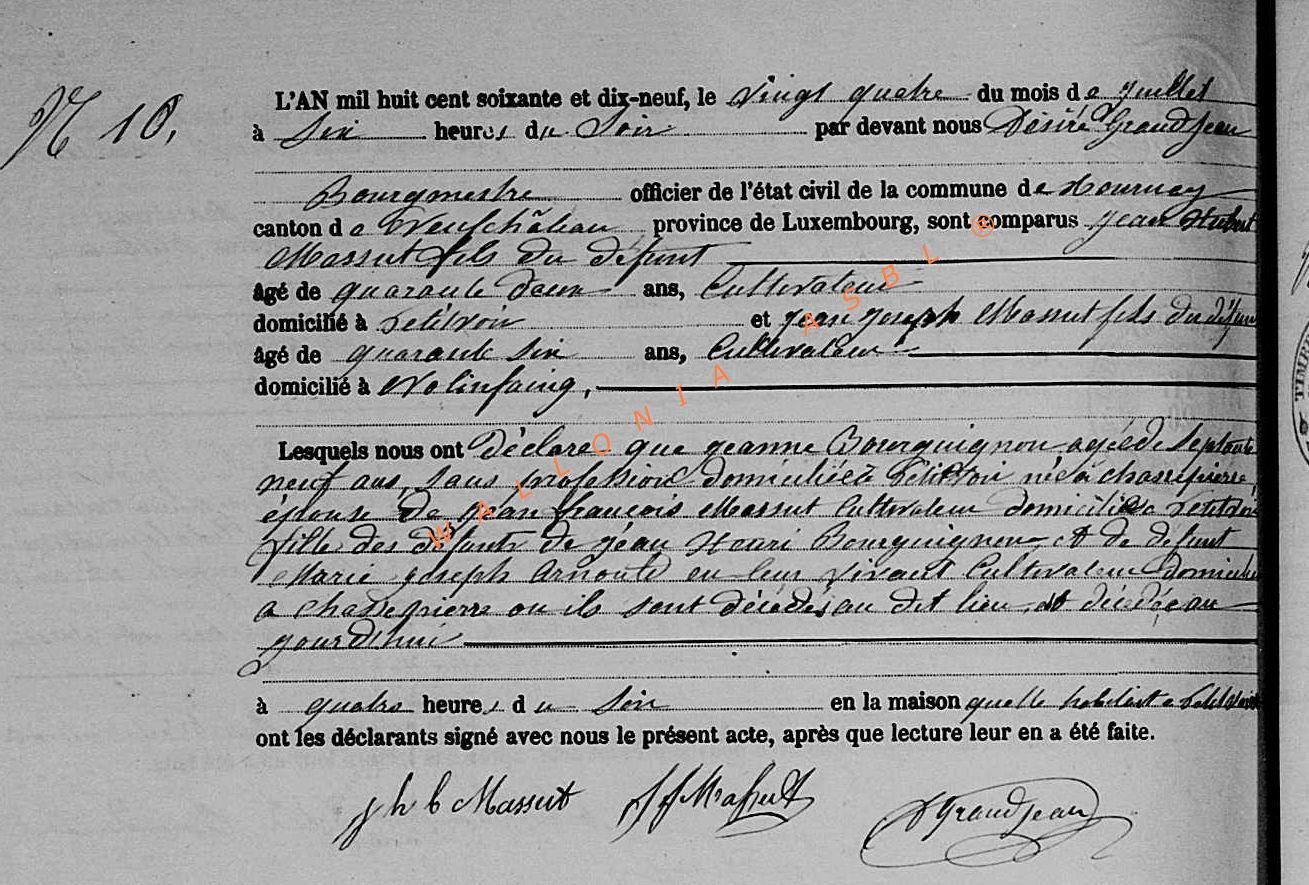 N 10.
L'AN mil huit cent soixante et dix-neuf, le vingt quatre du mois de Juillet
à Six heures du Soir par devant nous Désiré Grandjean
Bourgmestre officier de l'état civil de la commune de Tournay
canton de Neufchâteau province de Luxembourg, sont comparus Jean Hubert
Massut fils du défunt
âgé de quarante deux ans, Cultivateur
domicilié à Petitvoir et Jean Joseph Massut fils du défun
âgé de quarante Six ans, Cultivateur
domicilié à Wolinfaing,
Lesquels nous ont Déclaré que Jeanne Bourguignon agée de Septante
neuf ans, Sans profession domiciliée à Petitvoir née à Chassepierre,
épouse de Jean françois Massut Cultivateur domicilié à Petitvoir
fille des défunts de Jéan Henri Bourguignon et de défunt
Marie Joseph Arnould en leur vivant Cultivateur domicilié
a Chassepierre ou ils sont décédés au dit lieu, est décédée au
jourdhui
à quatre heures du Soir en la maison quelle habitait à Petitvoir
ont les déclarants signé avec nous le présent acte, après que lecture leur en a été faite.
J h b Massut J J Massut D Grandjean
WALLONIA ASBL ®
TIMBR